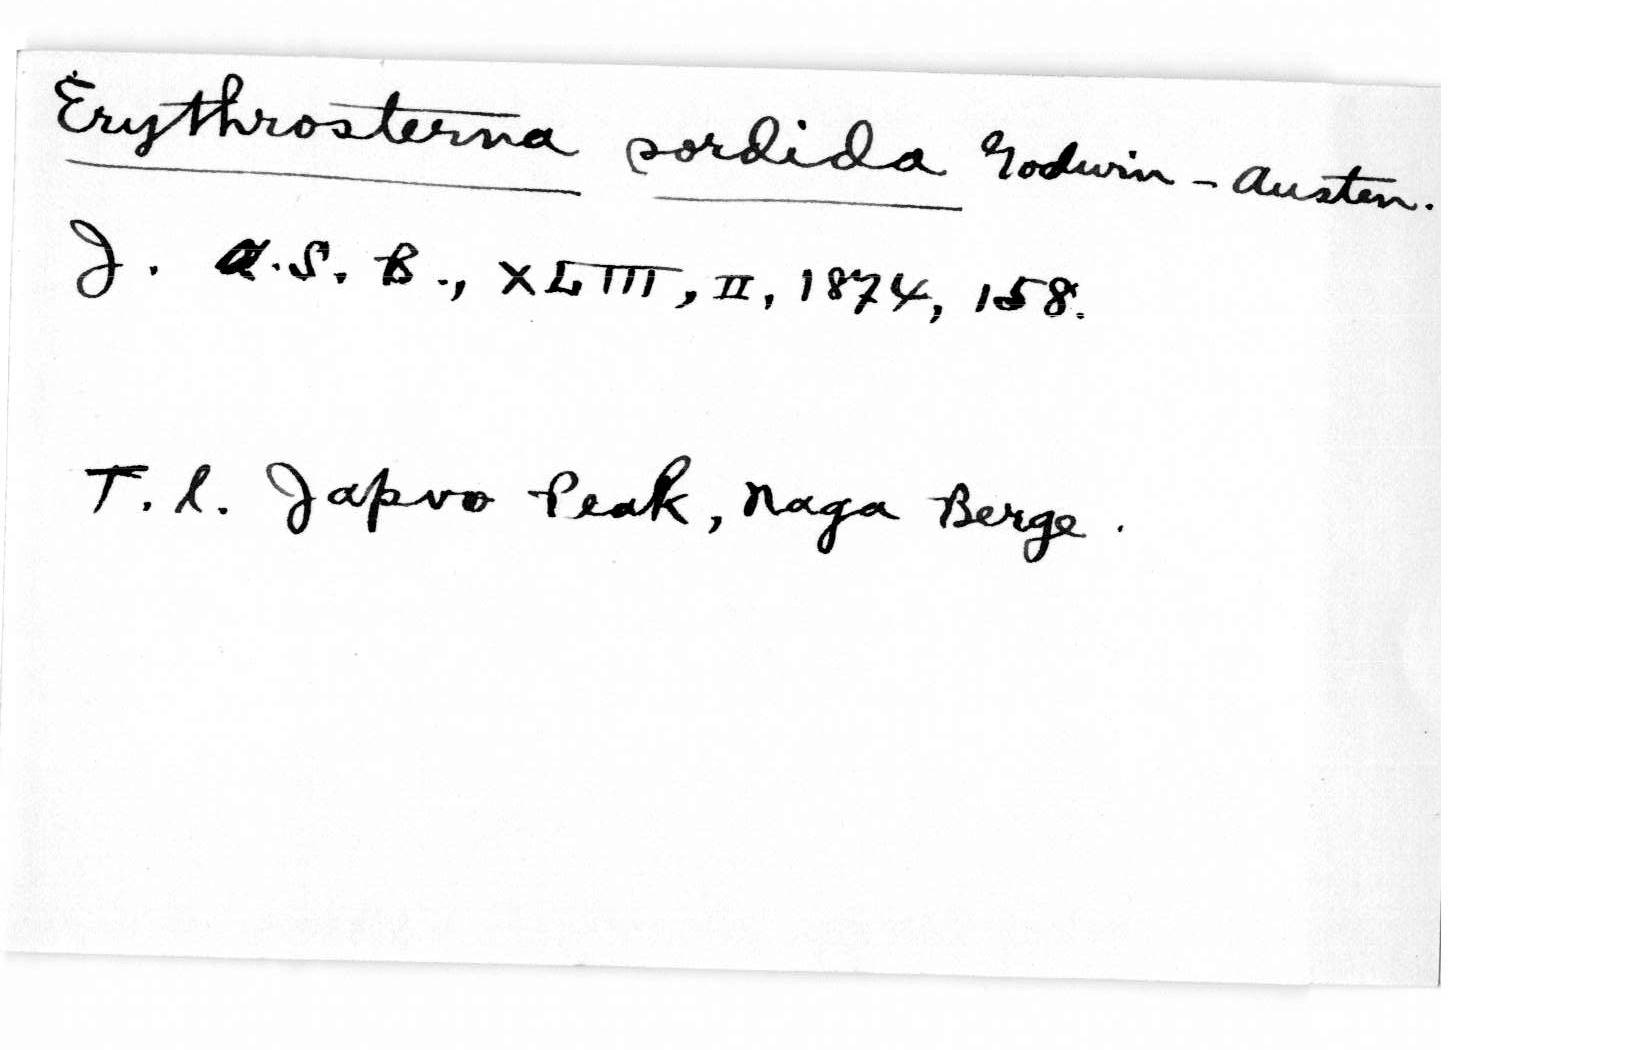 Erythrosterna sordida Godwin-Austen.
J. A.S.B., XLIII, II, 1874, 158.
T. l. Japvo Peak, Naga Berge.